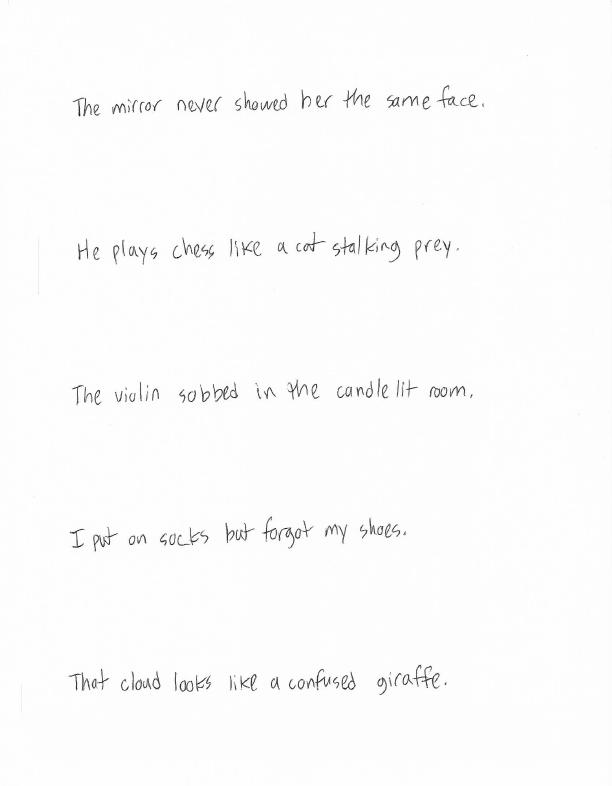 The mirror never showed her the same face.
He plays chess like a cat stalking prey.
The violin sobbed in the candle lit room.
I put on socks but forgot my shoes.
That cloud looks like a confused giraffe.